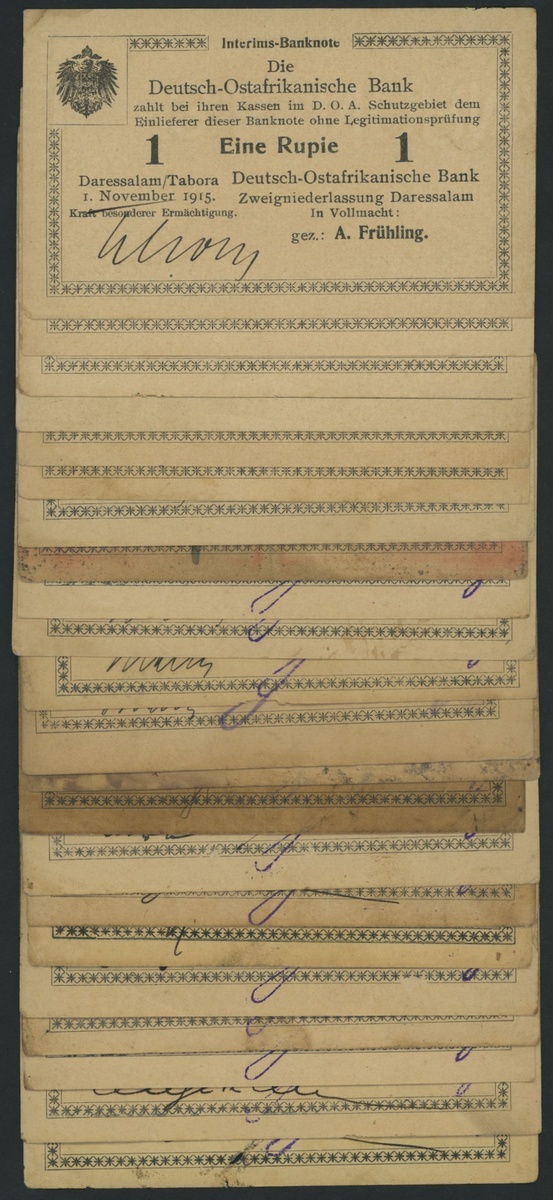 Interims-Banknote
Die
Deutsch-Ostafrikanische Bank
zahlt bei ihren Kassen im D. O. A. Schutzgebiet dem
Einlieferer dieser Banknote ohne Legitimationsprüfung
1 Eine Rupie 1
Daressalam/Tabora Deutsch-Ostafrikanische Bank
1. November 1915. Zweigniederlassung Daressalam
Kraft besonderer Ermächtigung. In Vollmacht:
gez.: A. Frühling.